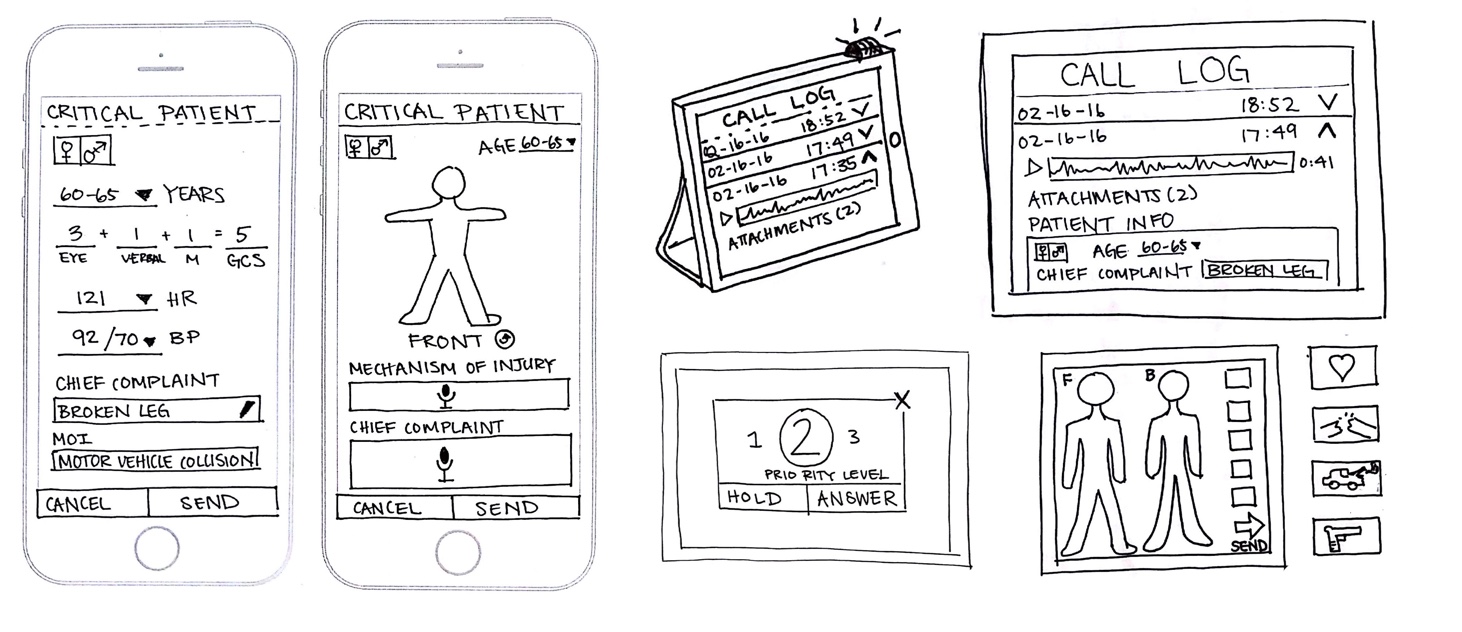 CRITICAL PATIENT
60-65 YEARS
3 + 1 + 1 = 5
EYE VERBAL M GCS
121 HR
92/70 BP
CHIEF COMPLAINT
BROKEN LEG
MOI
MOTOR VEHICLE COLLISION
CANCEL SEND
CRITICAL PATIENT
AGE 60-65
FRONT
MECHANISM OF INJURY
CHIEF COMPLAINT
CANCEL SEND
CALL LOG
02-16-16 18:52
02-16-16 17:49
02-16-16 17:35
ATTACHMENTS (2)
CALL LOG
02-16-16 18:52
02-16-16 17:49
0:41
ATTACHMENTS (2)
PATIENT INFO
AGE 60-65
CHIEF COMPLAINT BROKEN LEG
X
1 2 3
PRIORITY LEVEL
HOLD ANSWER
F B
SEND